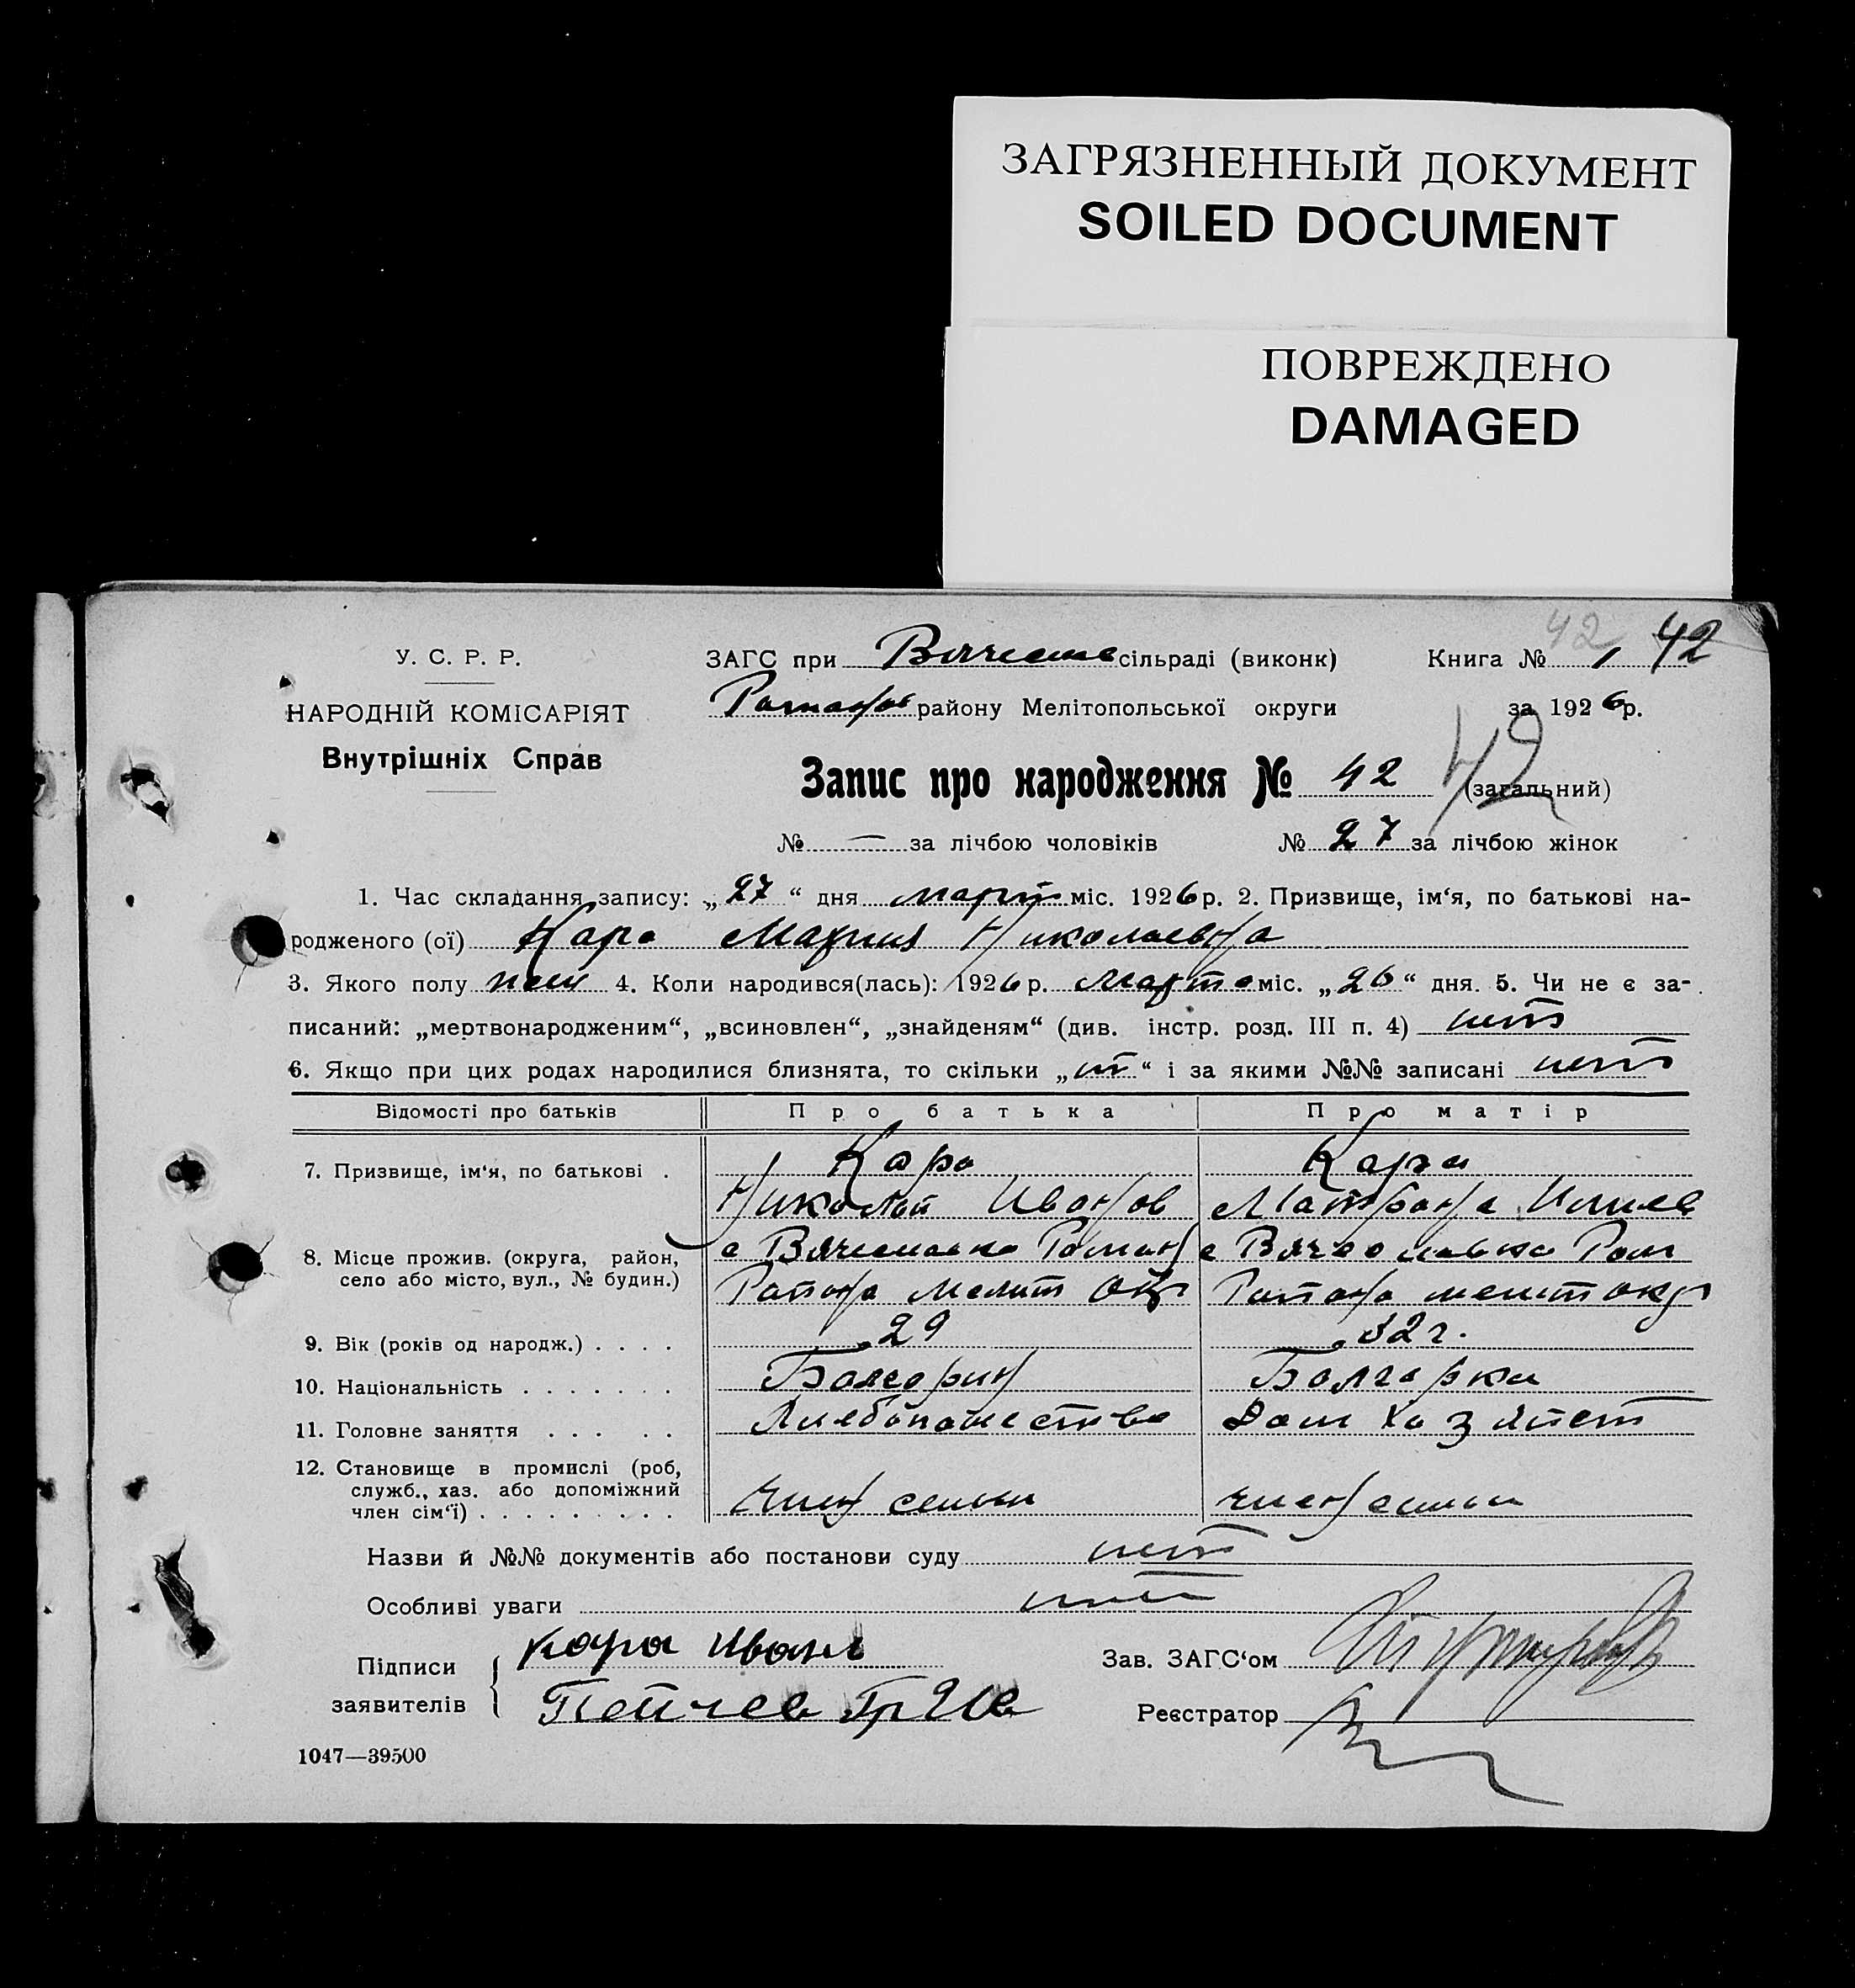 ЗАГРЯЗНЕННЫЙ ДОКУМЕНТ
SOILED DOCUMENT
ПОВРЕЖДЕНО
DAMAGED
42 42
У. С. Р. Р.
НАРОДНІЙ КОМІСАРІЯТ
Внутрішніх Справ
ЗАГС при сільраді (виконк) Книга № 1
Романов району Мелітопольської округи за 1926 р.
Запис про народження № 42 42 (загальний)
№ — за лічбою чоловіків № 27 за лічбою жінок
1. Час складання запису: „27“ дня март міс. 1926 р. 2. Призвище, ім‘я, по батькові на-
родженого (ої) Кара Мария Николаевна
3. Якого полу жен 4. Коли народився(лась): 1926 р. марта міс. „26“ дня. 5. Чи не є за-
писаний: „мертвонародженим“, „всиновлен“, „знайденям“ (див. інстр. розд. III п. 4) нет
6. Якщо при цих родах народилися близнята, то скільки „нет“ і за якими №№ записані нет
Відомості про батьків Про батька Про матір
7. Призвище, ім‘я, по батькові . Кара Кара
Николай Иванов Матрона Илиев
8. Місце прожив. (округа, район, с Вячеславка Роман с Вячеславка Ром
село або місто, вул., № будин.) Району Мелит окр Району мелит окр
9. Вік (років од народж.) . . . . 29 32 г.
10. Національність . . . . . . . Болгарин Болгарка
11. Головне заняття . . . . . Хлебопашество Дом хазяйст
12. Становище в промислі (роб,
служб., хаз. або допоміжний
член сім‘ї) . . . . . . . . . член семьи член семьи
Назви й №№ документів або постанови суду нет
Особливі уваги нет
Підписи
заявителів
Кара Иван
Пейчев Гр
Зав. ЗАГС‘ом
Реєстратор
1047—39500